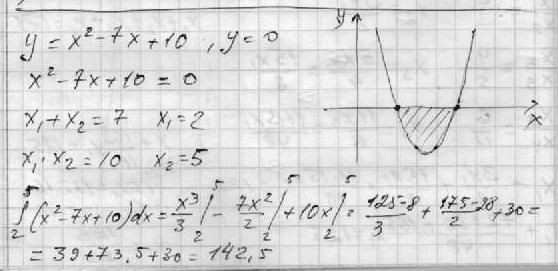 y = x² - 7x + 10 , y = 0
x² - 7x + 10 = 0
x₁ + x₂ = 7 x₁ = 2
x₁ · x₂ = 10 x₂ = 5
y
x
∫₂⁵ (x² - 7x + 10) dx = x³/3 |₂⁵ - 7x²/2 |₂⁵ + 10x |₂⁵ = (125-8)/3 + (175-28)/2 + 30 =
= 39 + 73,5 + 30 = 142,5